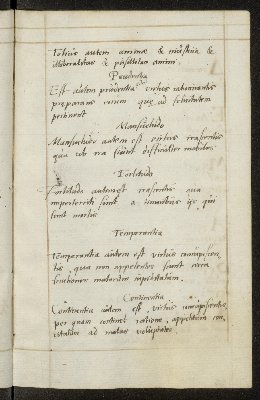 Totius autem animae & iniustitia &
illiberalitas & pusillitas animi.
Prudentia
Est autem prudentia virtus rationantis
preparans virum que ad felicitatem
pertinent
Mansuetudo
Mansuetudo autem est virtus irascentis
qua ab ira fiunt difficiliter mobiles.
Fortitudo
Fortitudo autem est irascentis qua
imperterriti sunt a timoribus qui
sunt mortis
Temperantia
Temperantia autem est virtus concupiscen
tis, qua non appetentes fiunt circa
malarum
Continentia
Continentia autem est virtus concupiscentis
per quam continet ratione, appetitum con
citatum ad malas voluptates